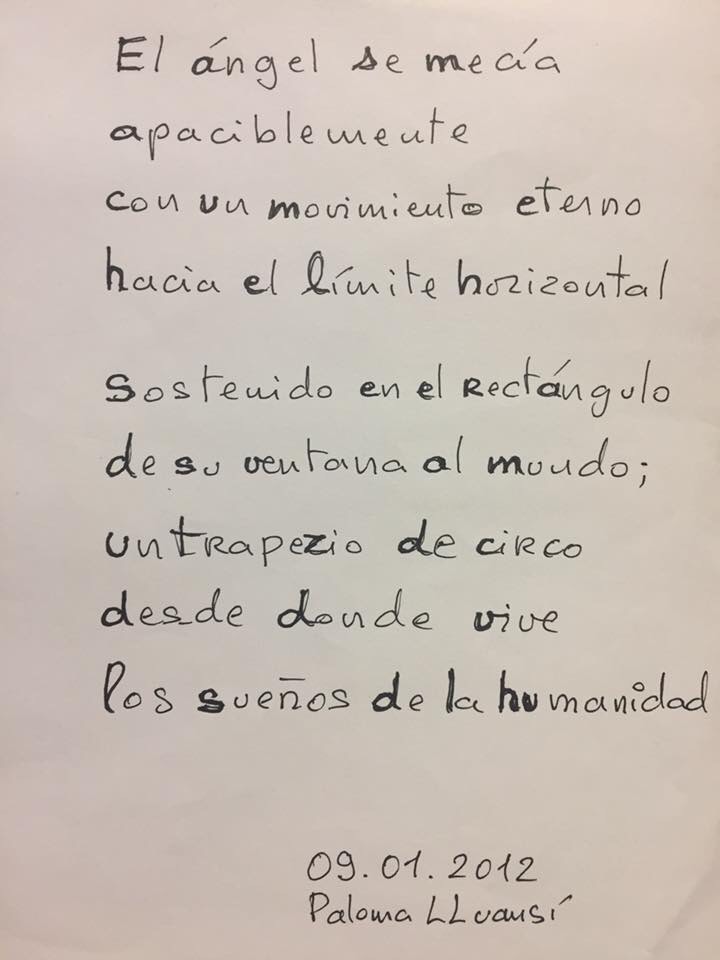 El ángel se mecía
apaciblemente
con un movimiento eterno
hacia el límite horizontal
Sostenido en el Rectángulo
de su ventana al mundo;
un trapezio de circo
desde donde vive
los sueños de la humanidad
09.01.2012
Paloma LLuansí